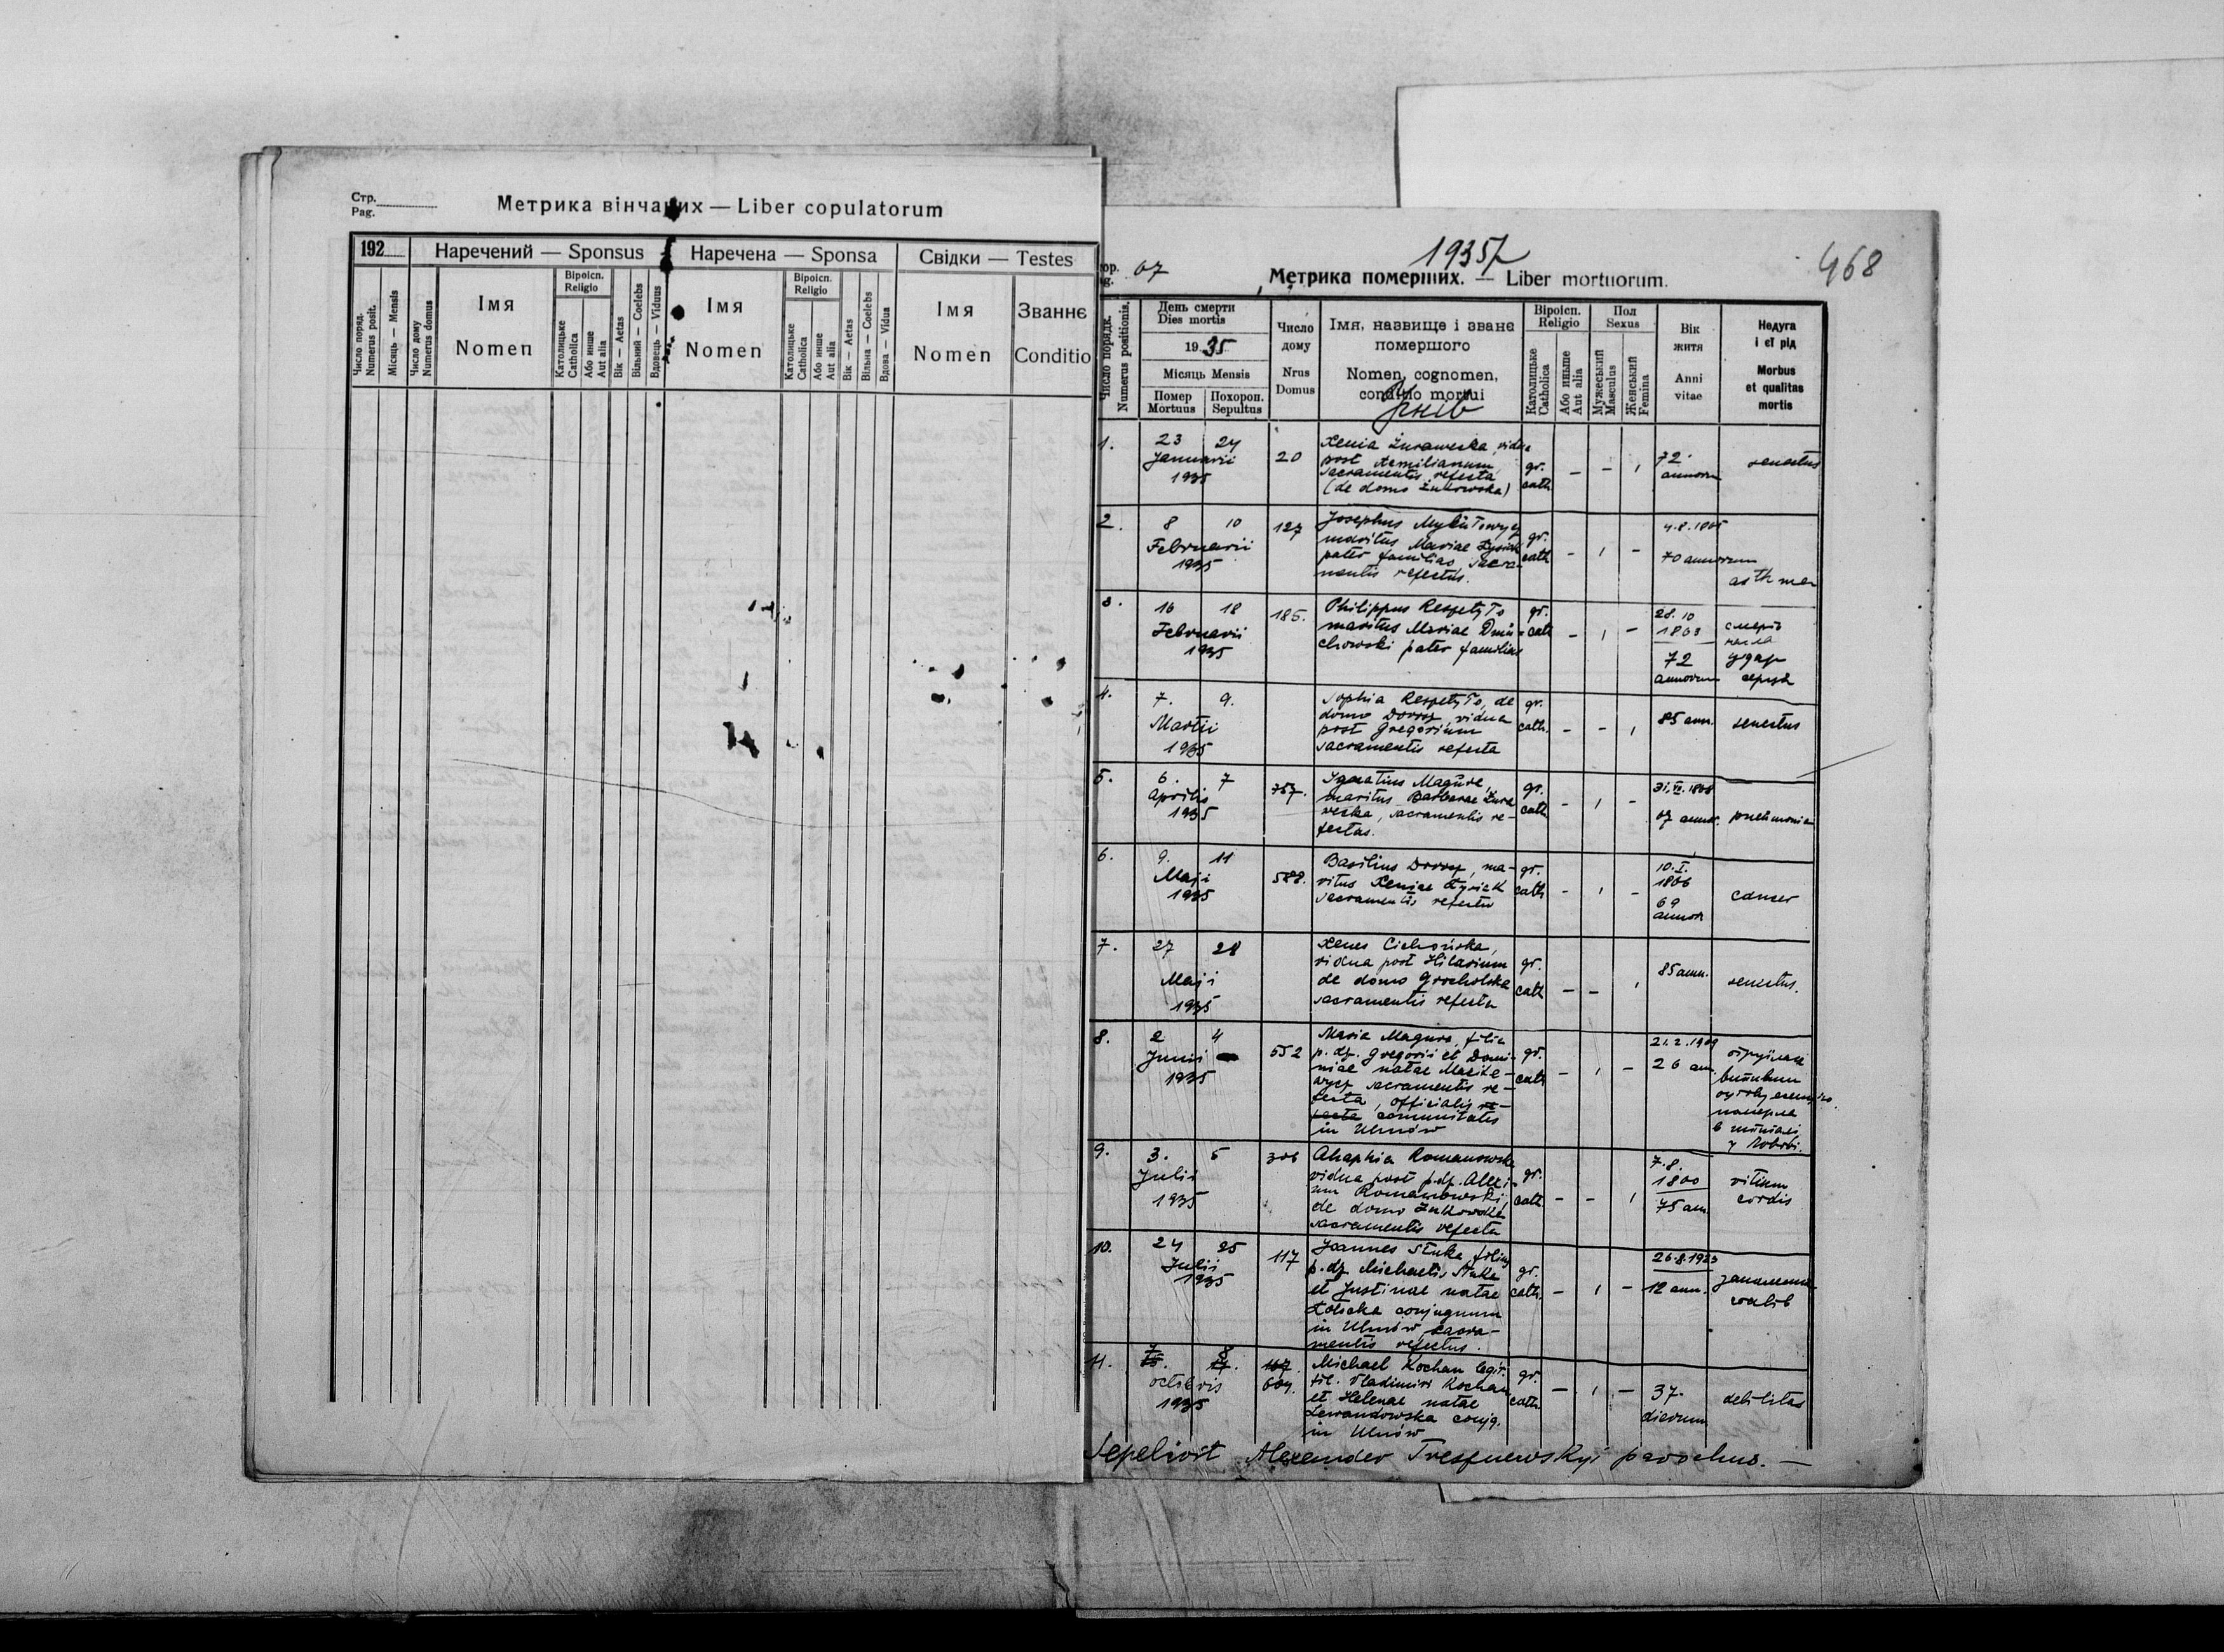 Стр.
Pag.
Метрика вінчаних — Liber copulatorum
192
Наречений — Sponsus
Наречена — Sponsa
Свідки — Testes
Число поряд.
Numerus posit.
Місяць — Mensis
Число дому
Numerus domus
Імя
Nomen
Віроісп.
Religio
Католицьке
Catholica
Або инше
Aut alia
Вік — Aetas
Вільний — Coelebs
Вдовець — Viduus
Імя
Nomen
Віроісп.
Religio
Католицьке
Catholica
Або инше
Aut alia
Вік — Aetas
Вільна — Coelebs
Вдова — Vidua
Імя
Nomen
Званнє
Conditio
1935
468
67
Метрика померших. — Liber mortuorum.
Число порядк.
Numerus positionis.
День смерти
Dies mortis
1935
Місяць Mensis
Помер
Mortuus
Похорон.
Sepultus
Число
дому
Nrus
Domus
Імя, назвище і званє
помершого
Nomen, cognomen,
conditio mortui
Віроісп.
Religio
Католицьке
Catholica
Або иньше
Aut alia
Пол
Sexus
Мужеський
Masculus
Женський
Femina
Вік
життя
Anni
vitae
Недуга
і єї рід
Morbus
et qualitas
mortis
1. 23 24
Januarii
1935
20
Xenia Żurawecka, vidua
post Aemilianum,
sacramentis refecta
(de domo Żukowska)
gr.
cath
— — ı
72
annorum
senectus
2. 8 10
Februarii
1935
127
Josephus
maritus Mariae
pater familias, sacra-
mentis refectus.
gr.
cath
— ı —
70 annorum
asthma
3. 16 18
Februarii
1935
185.
Philippus
maritus Mariae
chowski pater familias
gr.
cath
— ı —
28.10
1863
72
annorum
смерть
нагла
удар
серця
4. 7. 9.
Martii
1935
Sophia de
domo vidua
post Gregorium
sacramentis refecta
gr.
cath.
— — ı
85 ann.
senectus
5. 6. 7
Aprilis
1935
757.
Ignatius Magura,
maritus Barbarae Żura
wecka, sacramentis re-
fectus.
gr.
cath
— ı —
67 annor.
pneumonia
6. 9. 11
Maji
1935
588.
Basilius ma-
ritus Xeniae
sacramentis refectus
gr.
cath
— ı —
10.I.
1866
69
annor
cancer
7. 27 28
Maji
1935
vidua post Hilarium
de domo Grocholska
sacramentis refecta
gr.
cath
— — ı
85 ann.
senectus.
8. 2 4
Junii
1935
552
Maria Magura, filia
p. df. Gregorii et Domi-
niae natae
sacramentis re-
fecta, officialis
comunitatis
in Uhnów
gr.
cath
— ı —
21.2.1909
26 an.
померла
в шпиталі
у Львові.
9. 3. 5
Julii
1935
306
Ahaphia Romanowska
vidua post p.df. Alexi-
um Romanowski,
de domo
sacramentis refecta
gr.
cath
— — ı
7.8.
1860
75 ann
vitium
cordis
10. 24 25
Julii
1935
117
Joannes Stuka filius
p. df Michaelis Stuka
et Justinae natae
conjugum
in Uhnów, sacra-
mentis refectus.
gr.
cath.
— ı —
26.8.1923
12 ann.
запалення
11. 7 8
octobris
1935
604.
Michael Kochan legit.
fil. Vladimiri Kochan
et Helenae natae
Lewandowska conjg.
in Uhnów
gr.
cath
— ı —
37
dierum
debilitas
Sepelivit Alexander parochus. —